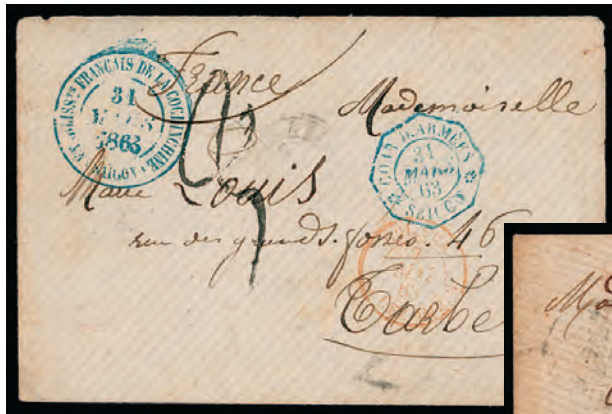 France
ETABLISSTS FRANÇAIS DE LA COCHINCHINE
31
MARS
1863
SAIGON
Mademoiselle
CORR. D. ARMEES
31
MARS
63
SAIGON
Marie Louis
rue des grands fossés. 46
Tarbe